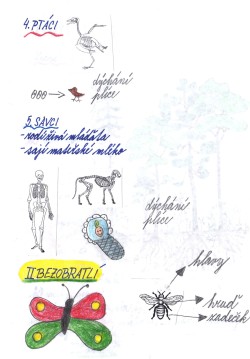 4. PTÁCI
dýchání
plíce
5. SAVCI
- rodí živá mláďata
- sají mateřské mléko
dýchání
plíce
II. BEZOBRATLÍ
hlavy
hruď
zadeček